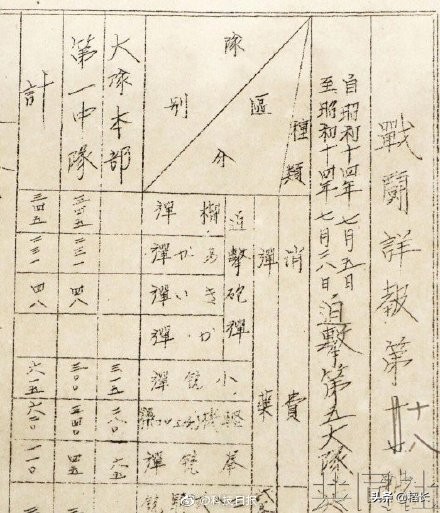 戰鬪詳報第十八
自昭和十四年七月五日
至昭和十四年七月二八日
迫擊第五大隊
種類
區分
隊別
消費
彈藥
迫擊砲彈
榴彈
あか彈
きい彈
か彈
小銃彈
拳銃彈
大隊本部
三一五
二八〇
六五
第一中隊
三四五
二三一
四八
三〇〇
三四〇
四五
計
三四五
二三一
四八
六一五
一一〇
共同社
头条 @稻长